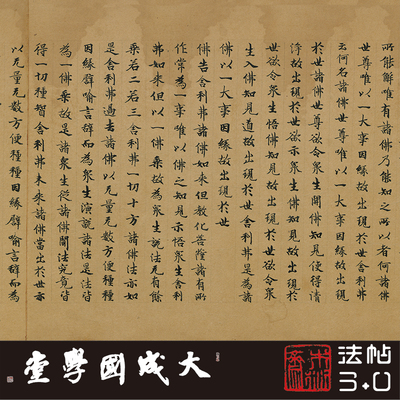 所能解唯有諸佛乃能知之所以者何諸佛
世尊唯以一大事因緣故出現於世舍利弗
云何名諸佛世尊唯以一大事因緣故出現
於世諸佛世尊欲令眾生開佛知見使得清
淨故出現於世欲示眾生佛知見故出現於
世欲令眾生悟佛知見故出現於世欲令眾
生入佛知見道故出現於世舍利弗是為諸
佛以一大事因緣故出現於世
佛告舍利弗諸佛如來但教化菩薩諸有所
作常為一事唯以佛之知見示悟眾生舍利
弗如來但以一佛乘故為眾生說法无有餘
乘若二若三舍利弗一切十方諸佛法亦如
是舍利弗過去諸佛以无量无數方便種種
因緣譬喻言辭而為眾生演說諸法是法皆
為一佛乘故是諸眾生從諸佛聞法究竟皆
得一切種智舍利弗未來諸佛當出於世亦
以无量无數方便種種因緣譬喻言辭而為
大成國學堂
法帖
3.0